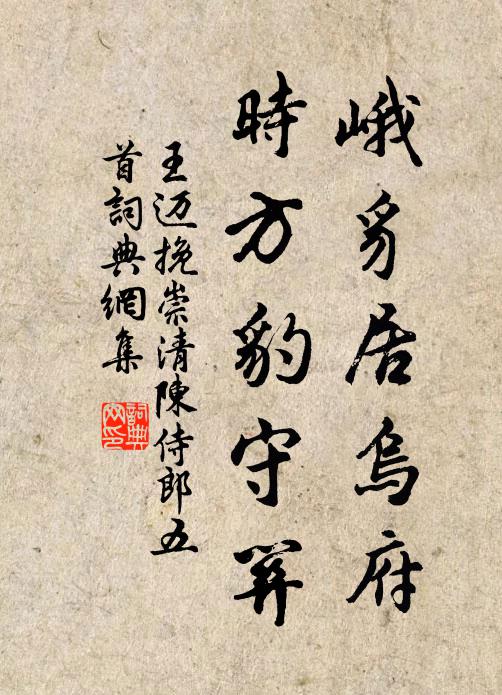 峨豸居烏府
時方豹守關
王迈挽崇清陳侍郎五
首詞典網集
詞典
网印